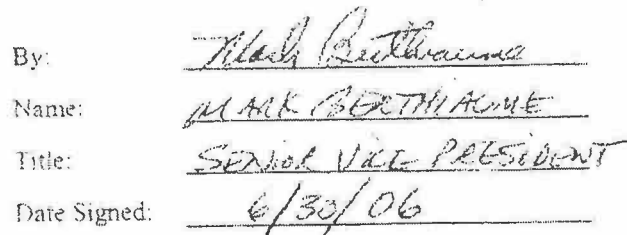 By: Mark Berthiaume
Name: MARK BERTHIAUME
Title: SENIOR VICE PRESIDENT
Date Signed: 6/30/06